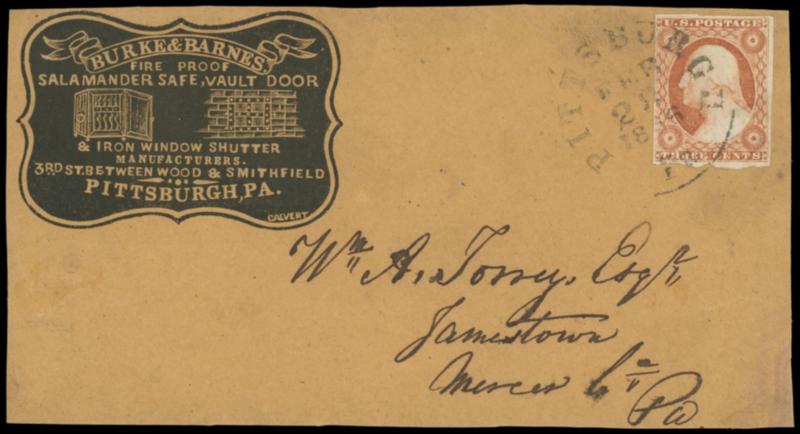 BURKE & BARNES,
FIRE PROOF
SALAMANDER SAFE, VAULT DOOR
& IRON WINDOW SHUTTER
MANUFACTURERS.
3RD ST. BETWEEN WOOD & SMITHFIELD
PITTSBURGH, PA.
CALVERT
U.S. POSTAGE
THREE CENTS
PITTSBURGH
FEB
Wm A. Torrey, Esqr.
Jamestown
Mercer Co
Pa